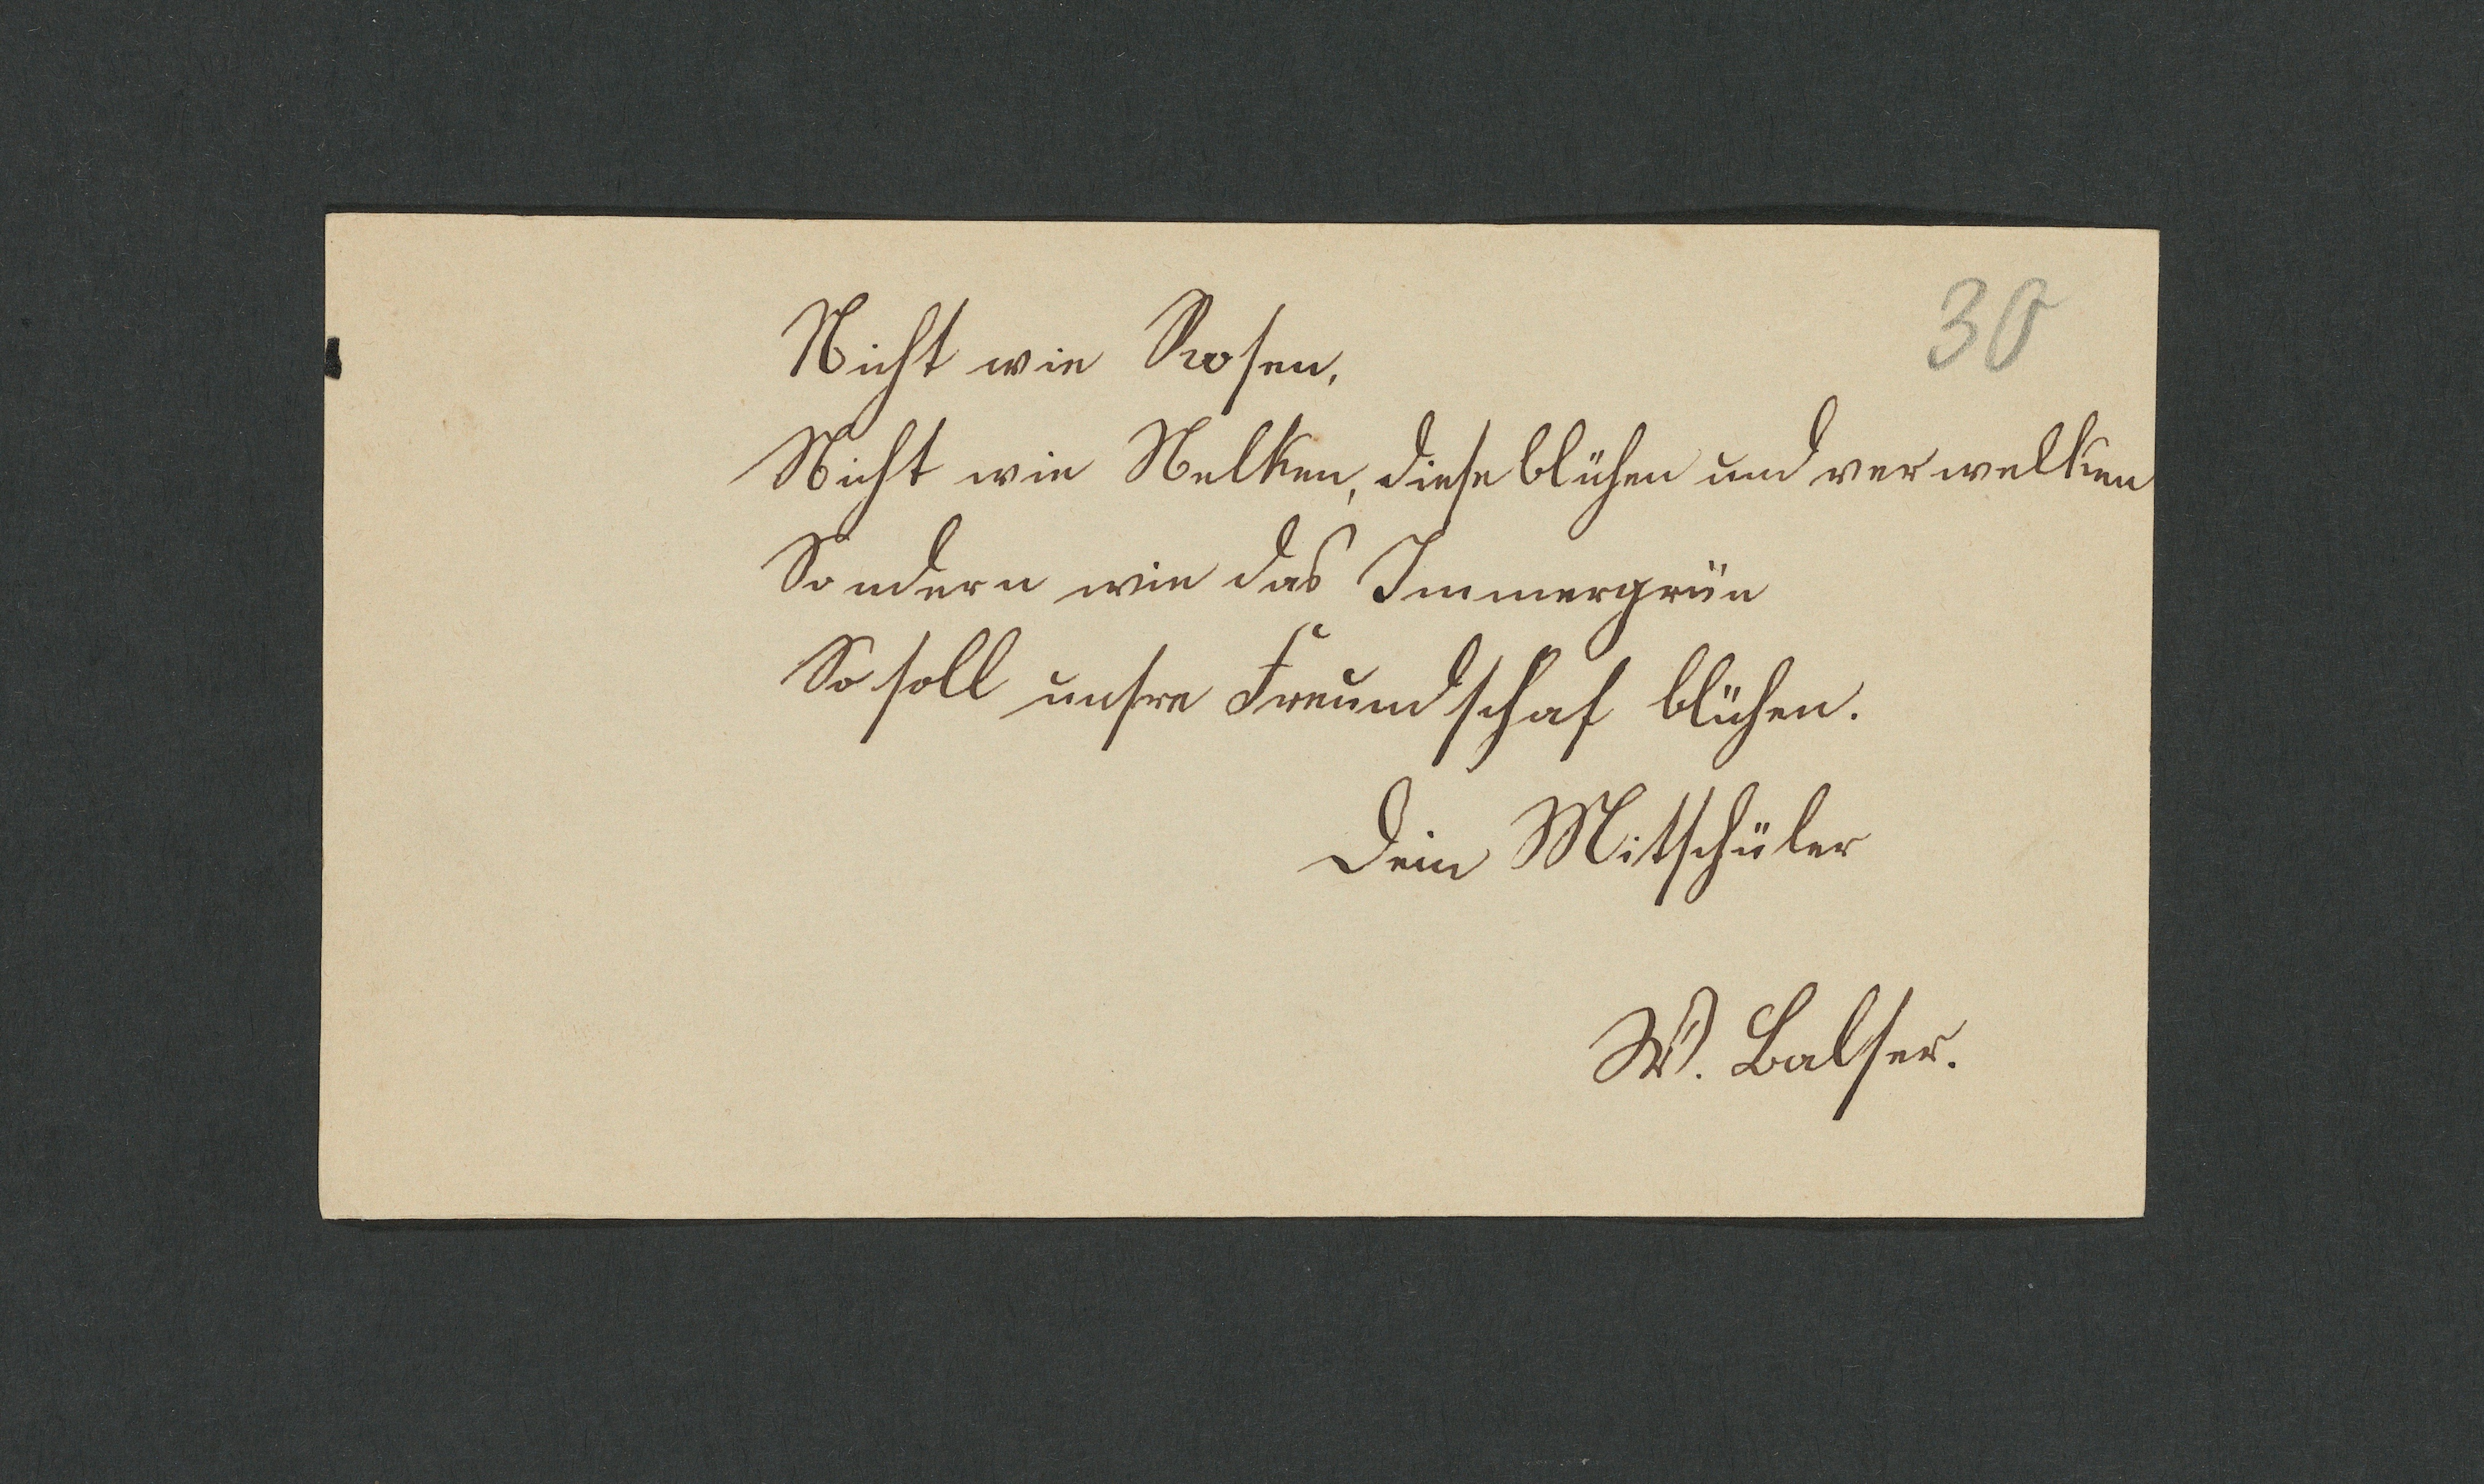 30
Nicht wie Rosen,
Nicht wie Nelken, diese blühen und verwelken
Sondern wie das Immergrün
So soll unsre Freundschaf blühen.
Dein Mitschüler
W. Balser.